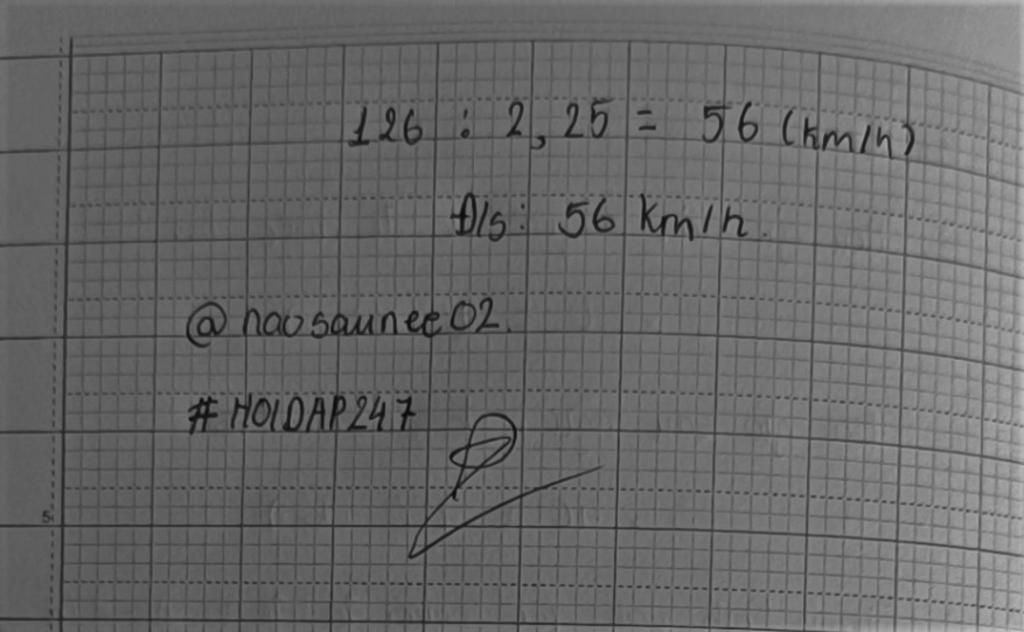 126 : 2,25 = 56 (km/h)
Đ/s: 56 km/h.
@naosaunee02.
#HOIDAP247
5